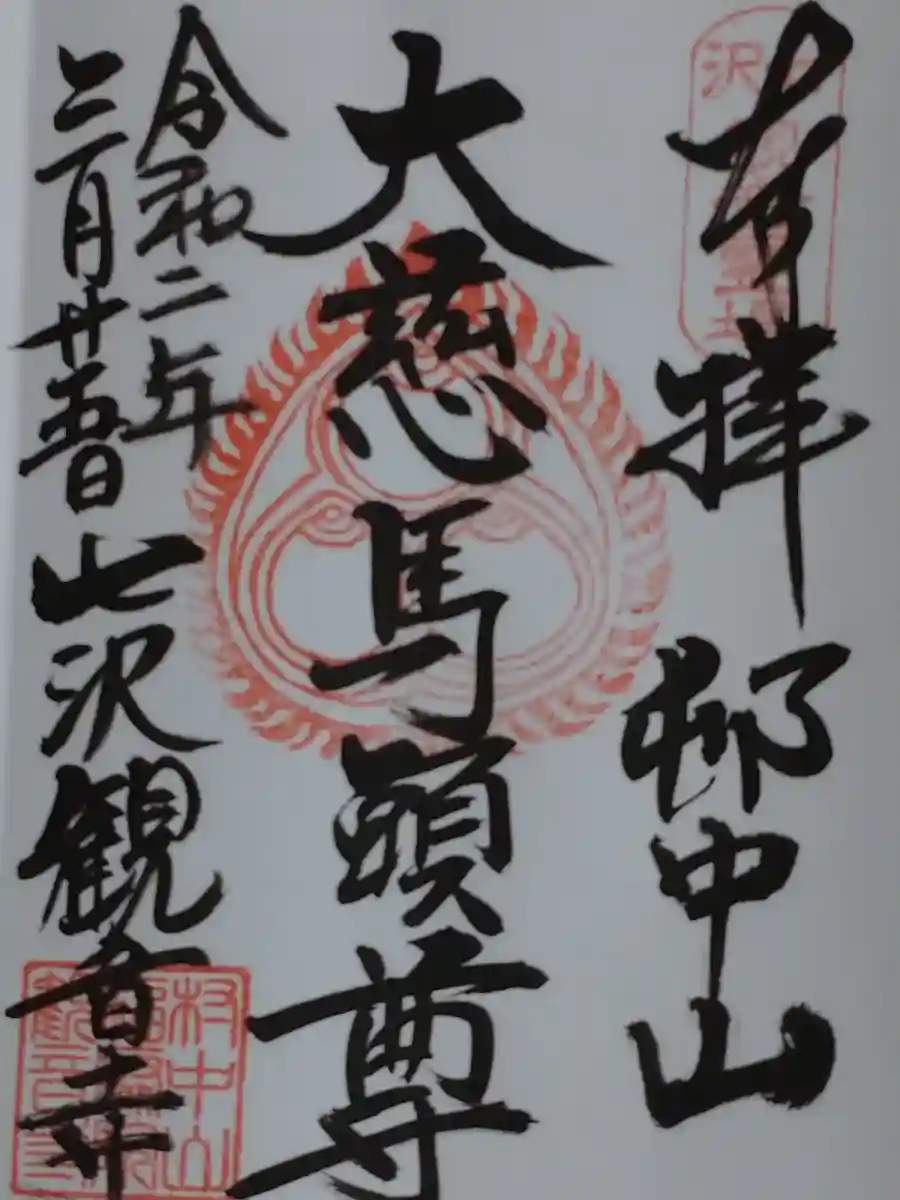 奉拝 邨中山
大慈馬頭尊
令和二年
三月廿五日 七沢観音寺
村中山